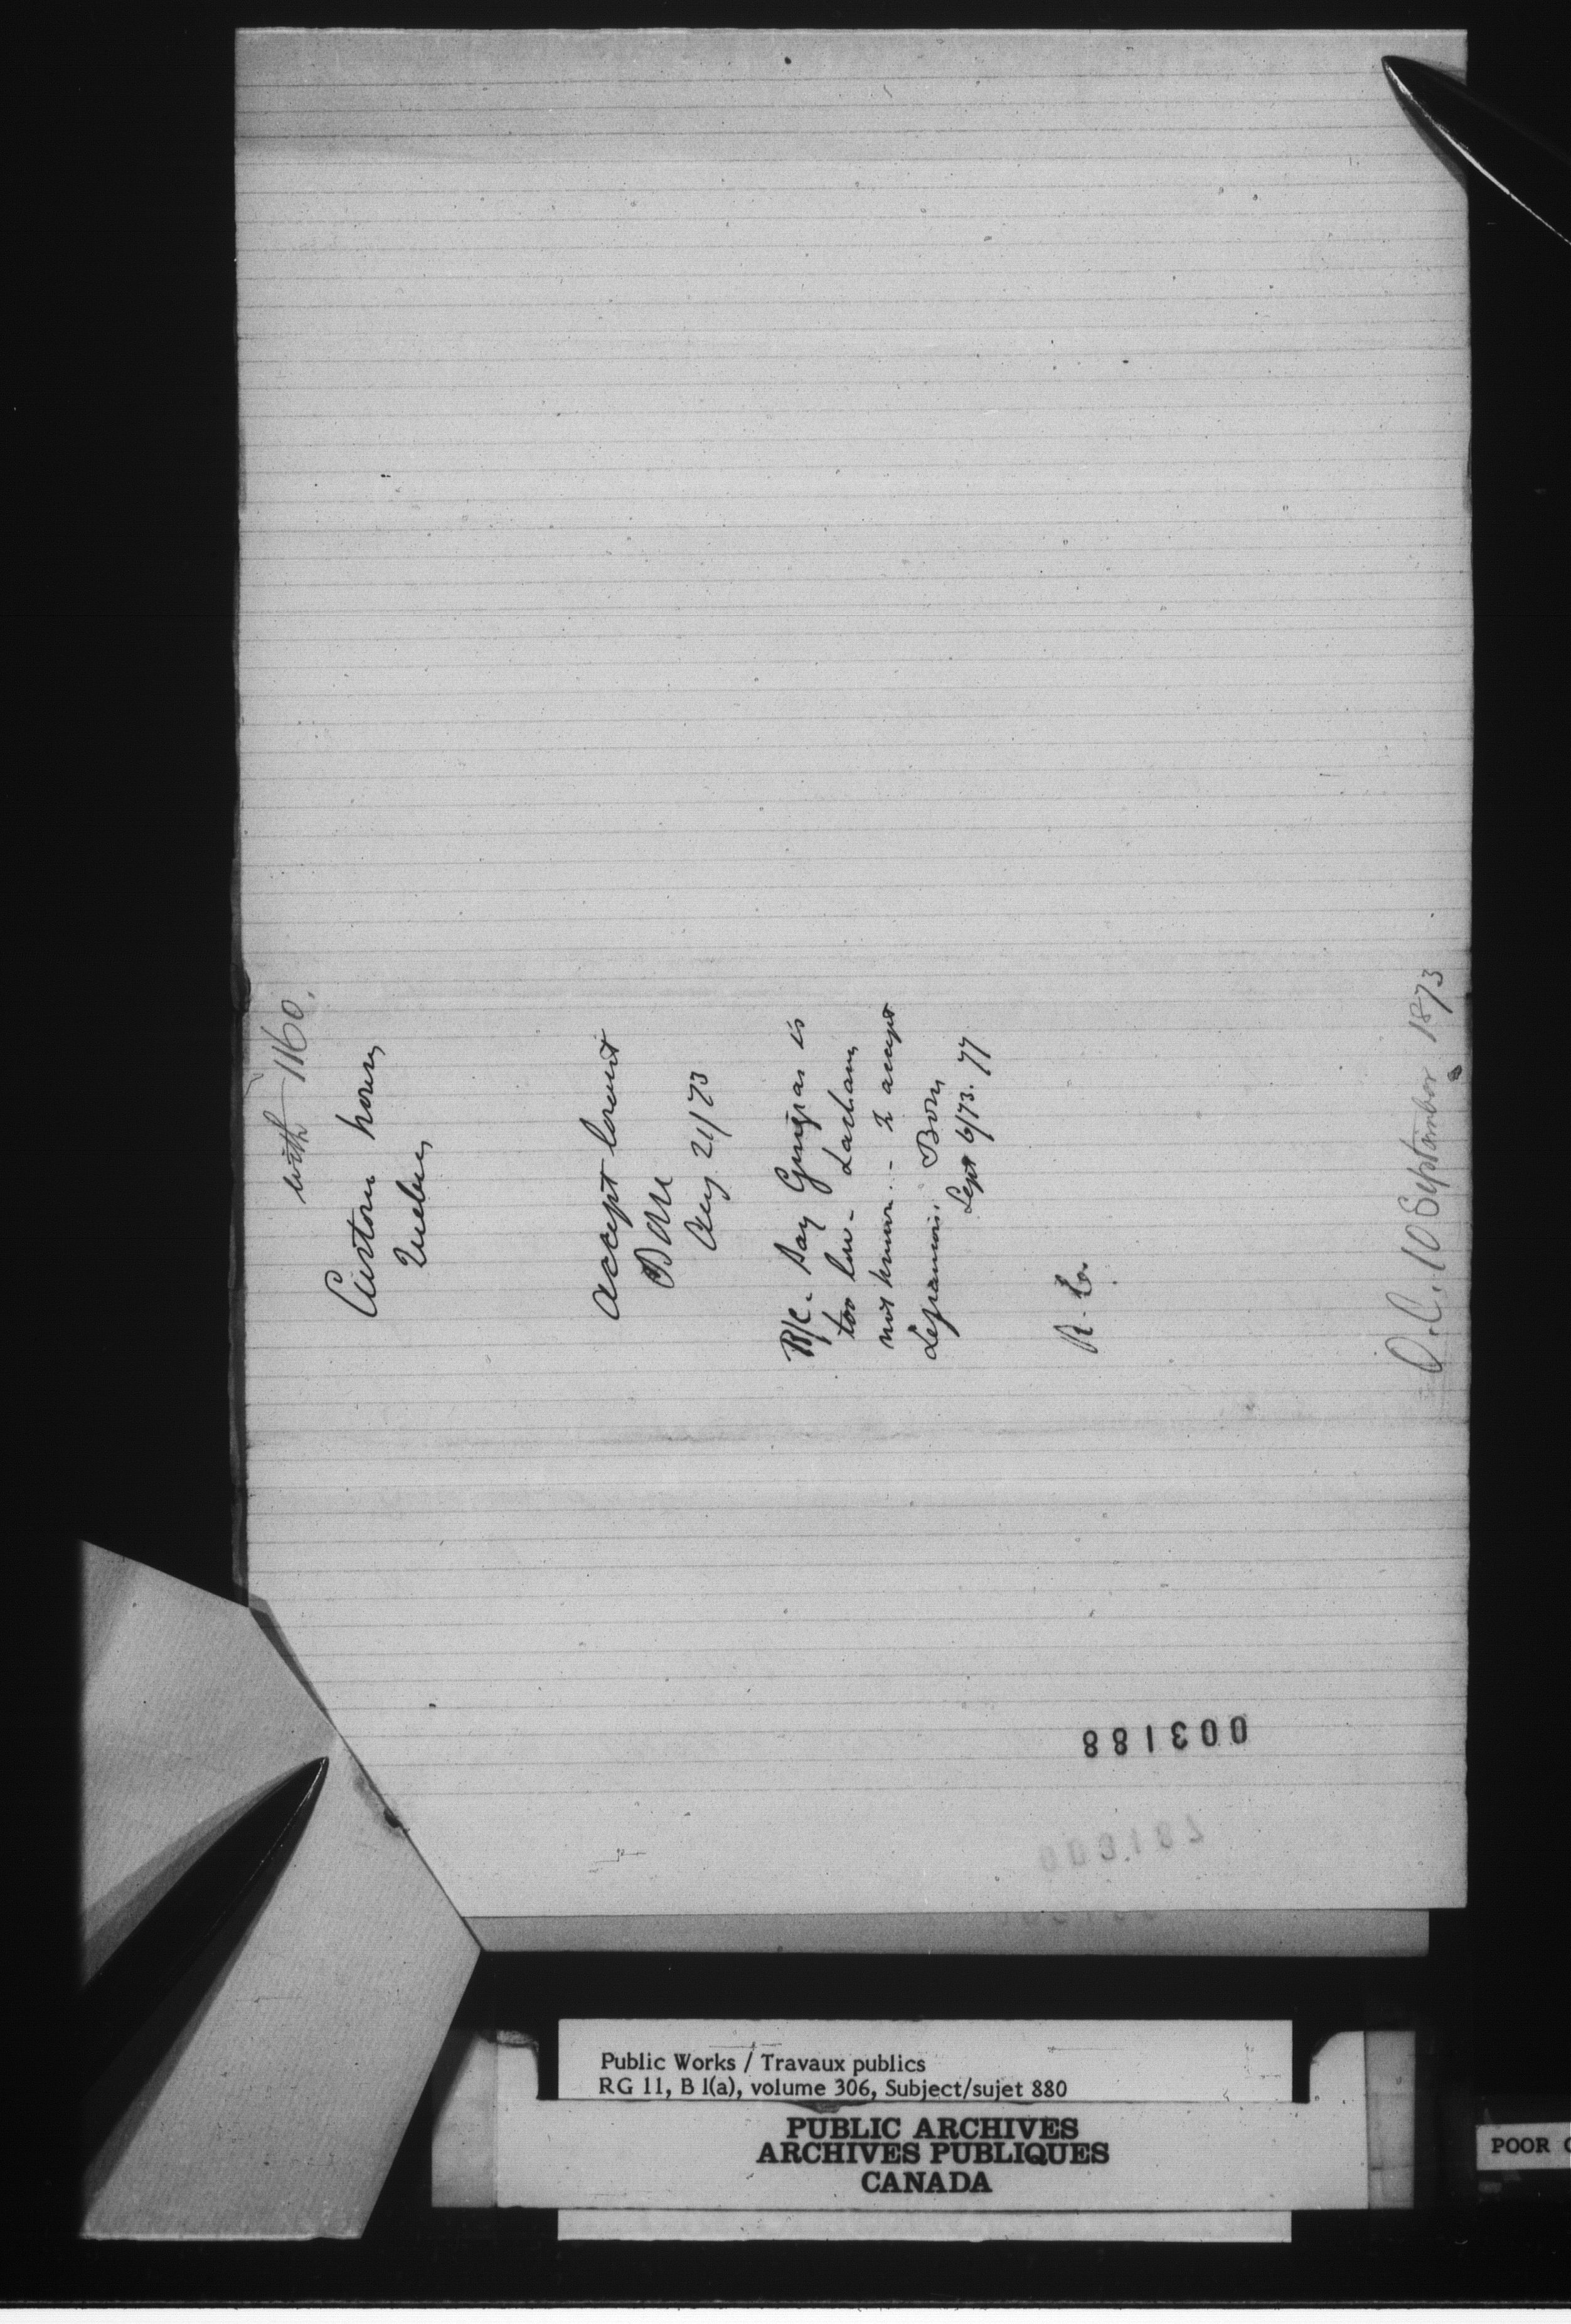 with 1160.
Custom house
Quebec
accept lowest
Aug 21/73
R/C - Say Gingras is
too low - Lachance
not known. - & accept
Sept 6/73.
R. Co.
O.C. 10 September 1873
003188
Public Works / Travaux publics
RG 11, B 1(a), volume 306, Subject/sujet 880
PUBLIC ARCHIVES
ARCHIVES PUBLIQUES
CANADA
POOR